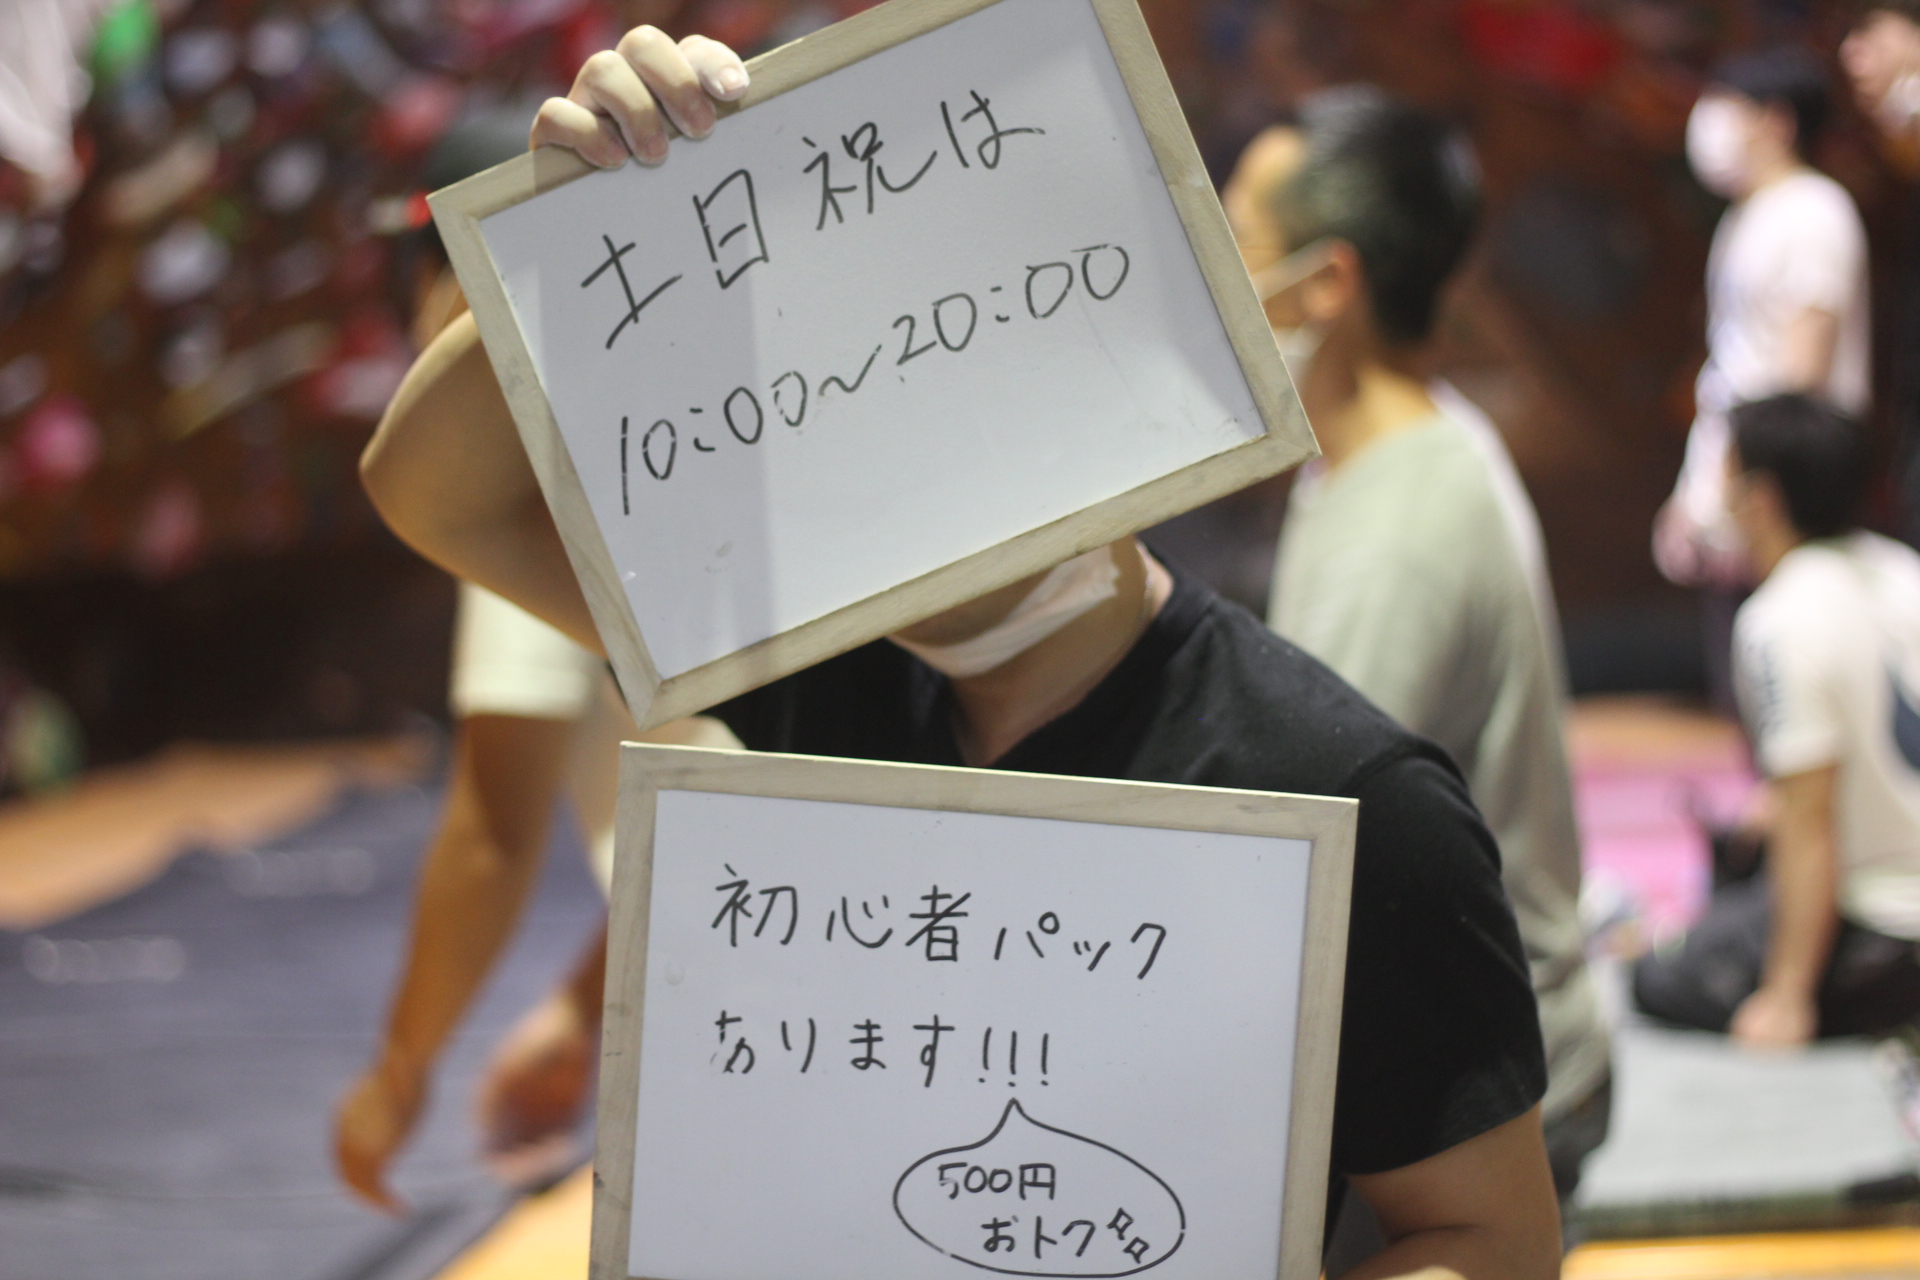 土日祝は
10:00～20:00
初心者パック
あります!!!
500円
おトク